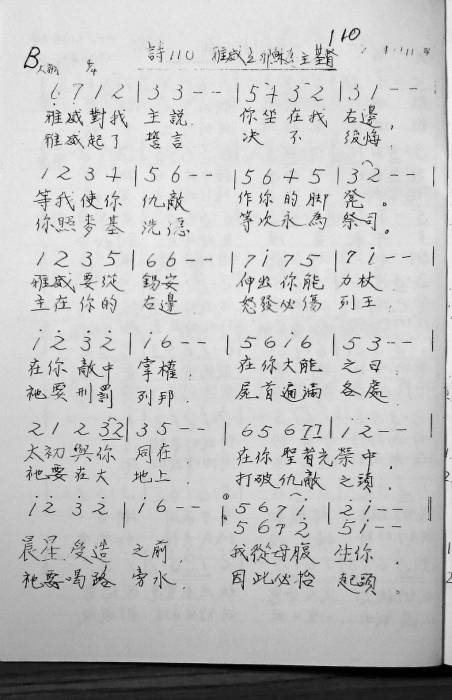 110
詩110 雅威立耶穌為主基督
B 大調 4/4
6̣ 7̣ 1 2 | 3 3 - - | 5 4 3 2 | 3 1 - - |
雅威對我 主說. 你坐在我 右邊,
雅威起了 誓言 決不 後悔,
1 2 3 4 | 5 6 - - | 5 6 4 5 | 3 2 - - |
等我使你 仇敵 作你的脚 凳。
你照麥基 洗德 等次永為 祭司。
1 2 3 5 | 6 6 - - | 7 i 7 5 | 7 i - - |
雅威要從 錫安 伸出你能 力杖
主在你的 右邊 怒發必傷 列王.
i 2̇ 3̇ 2̇ | i 6 - - | 5 6 i 6 | 5 3 - - |
在你敵中 掌權. 在你大能 之日
祂要刑罰 列邦. 屍首遍滿 各處
2 1 2 3 2 | 3 5 - - | 6 5 6 7 7 | i 2̇ - - |
太初與你 同在. 在你聖者光榮中,
祂要在大 地上. 打破仇敵 之頭.
i 2̇ 3̇ 2̇ | i 6 - - | 5 6 7 i | 2̇ i - - ‖
5 6 7 2̇ 5 i - -
晨星受造 之前, 我從母腹 生你.
祂要喝路 旁水. 因此必抬 起頭。